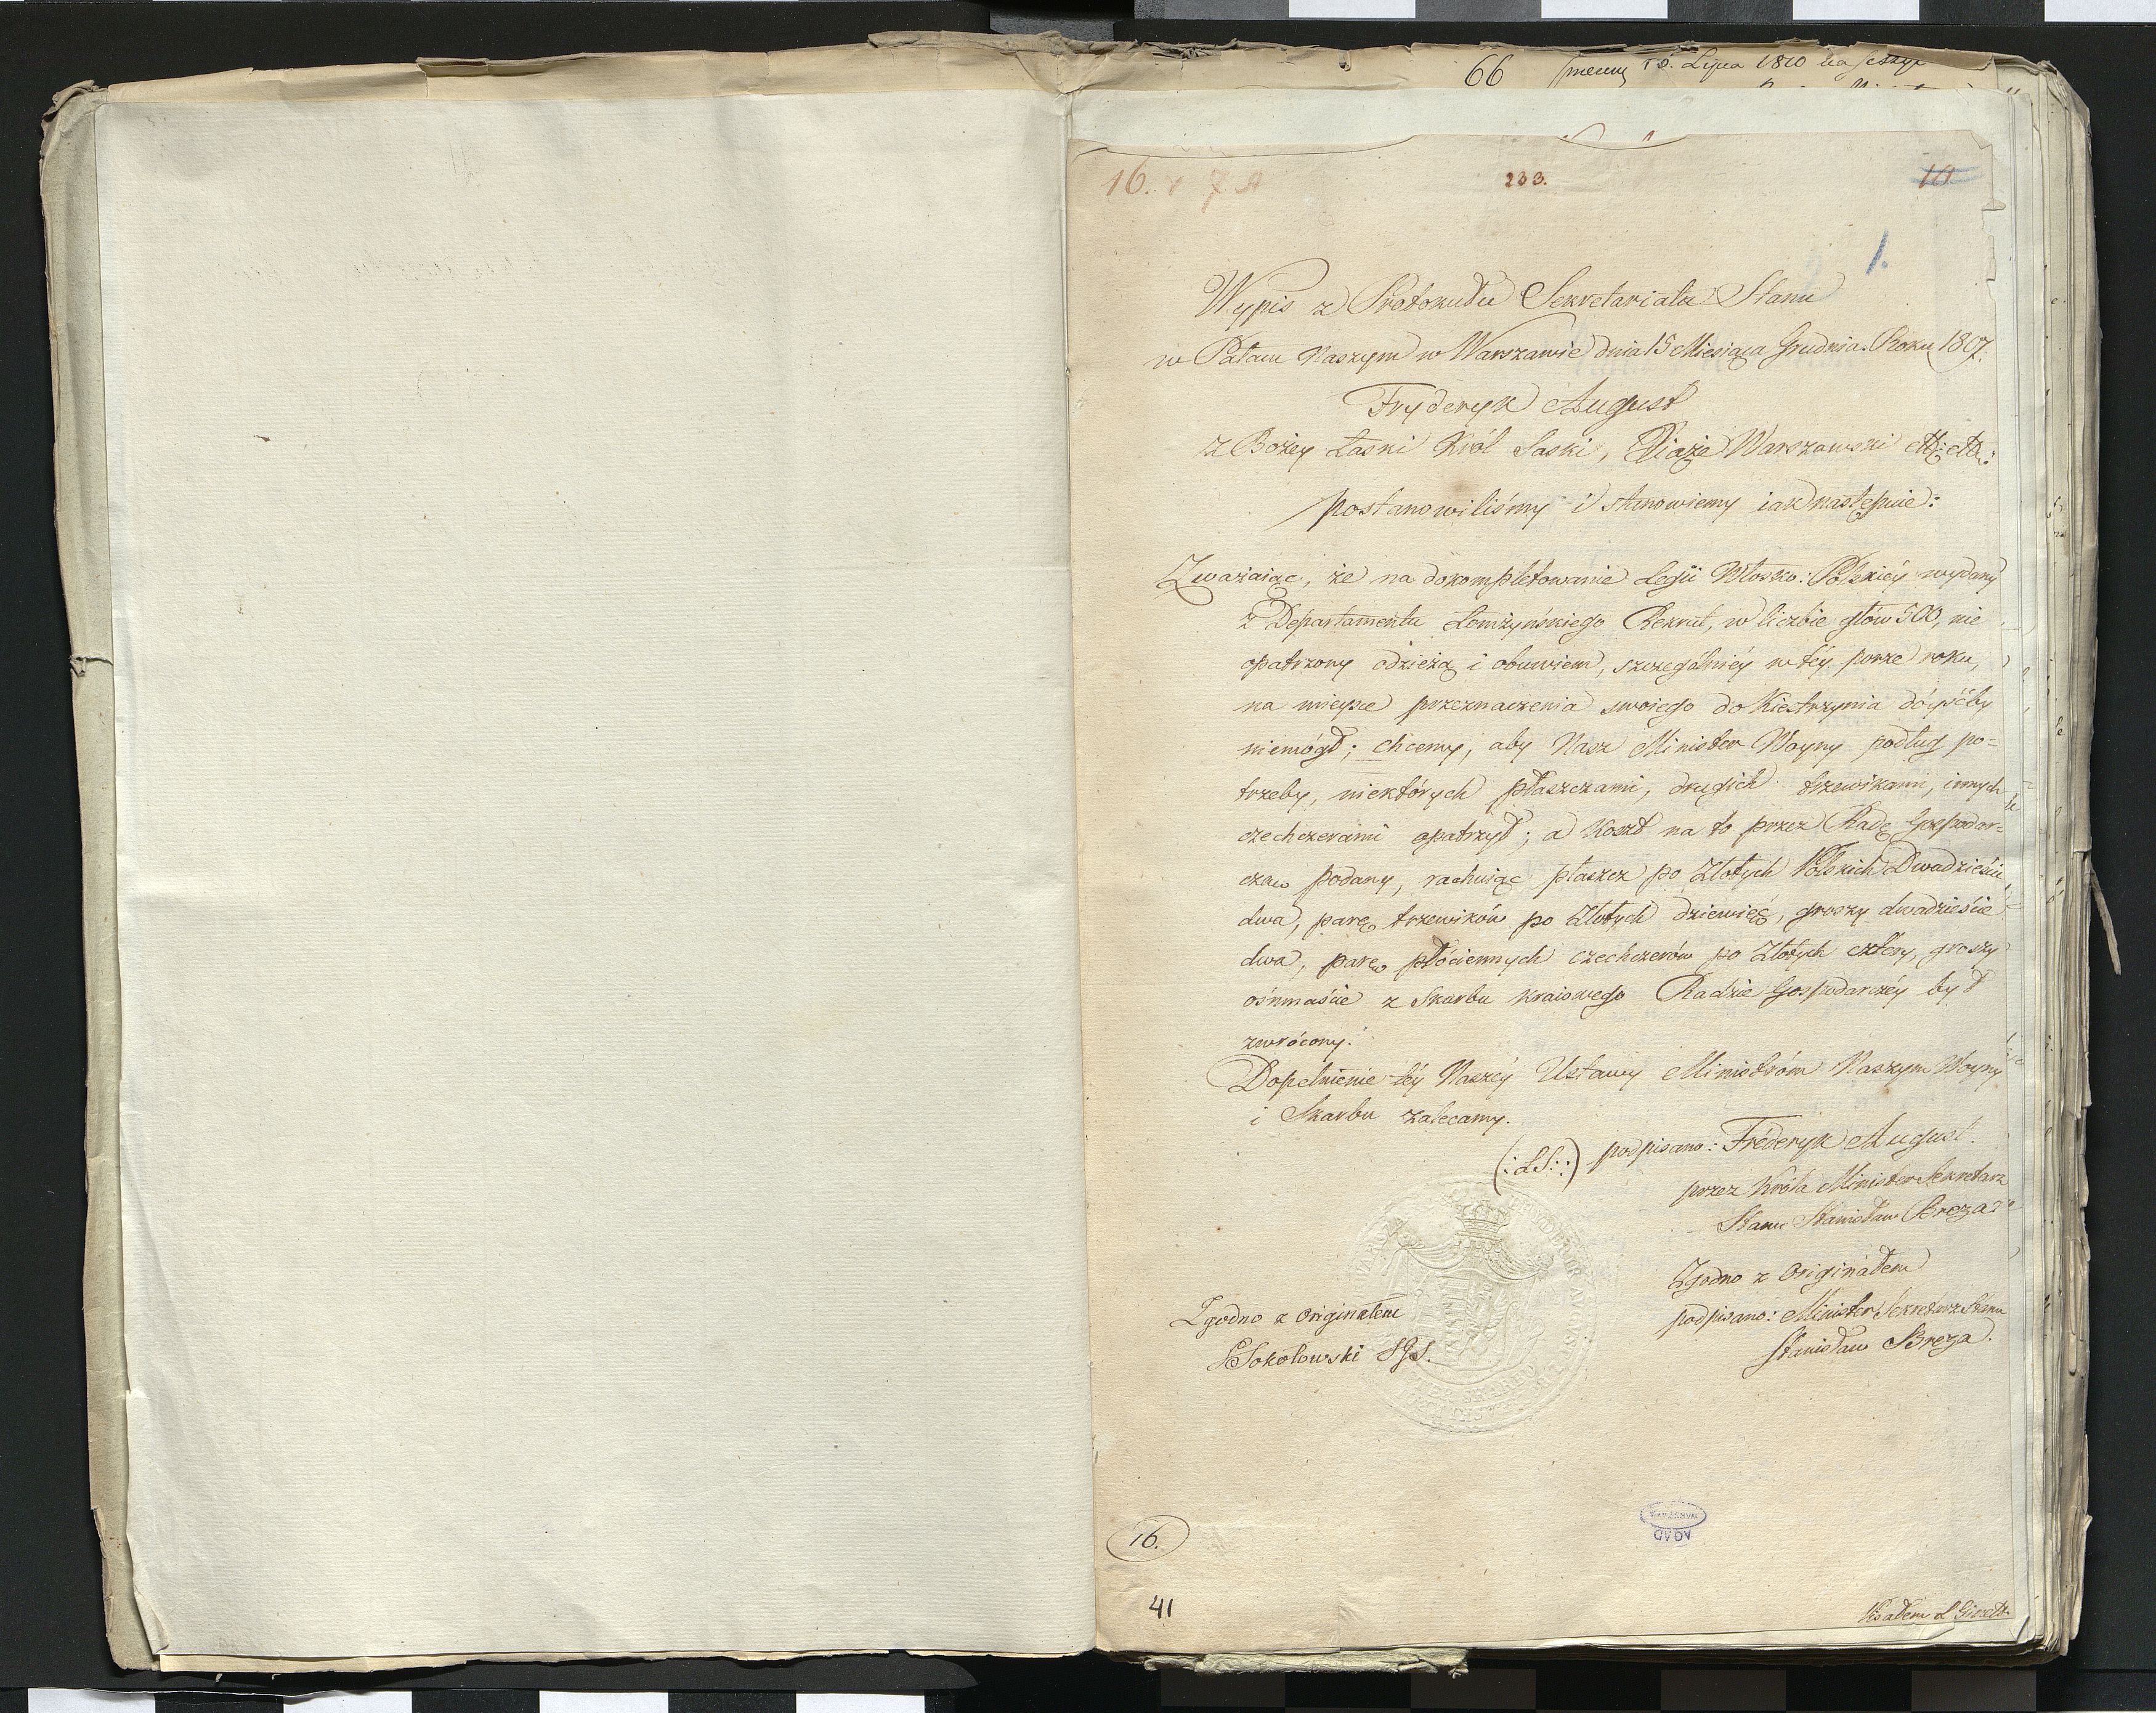 66 15. Lipca 1810 na
16. 7 A
233.
10
1.
Wypis z Protokułu Sekretariatu Stanu
w Pałacu Naszym w Warszawie dnia 15 Miesiąca Grudnia Roku 1807.
Fryderyk August
z Bożey Łaski Król Saski, Xiąże Warszawski etc: etc:
postanowiliśmy i stanowiemy iak następuie:
Zważaiąc, że na dokompletowanie Legii Włosko: Polskiéy wydany
z Departamentu Łomżyńskiego Rekrut, w liczbie głów 500, nie
opatrzony odzieżą i obuwiem, szczególniéy w téy porze roku,
na mieysce przeznaczenia swoiego do Kiestrzynia dóyśćby
niemógł; chcemy, aby Nasz Minister Woyny podług po=
trzeby, niektórych płaszczami, drugich trzewikami, innych
czechczerami opatrzył; a koszt na to przez Radę Gospodar=
czą podany, rachuiąc płaszcz po Złotych Polskich Dwadzieścia
dwa, parę trzewików po Złotych dziewięć, groszy dwadzieścia
dwa, parę płóciennych czechczerów po Złotych cztery, groszy
ośmnaście z Skarbu kraiowego Radzie Gospodarczéy był
zwrócony.
Dopełnienie téy Naszéy Ustawy Ministróm Naszym Woyny
i Skarbu zalecamy.
(:LS:) podpisano: Fréderyk August.
przez Króla Minister Sekretarz
Stanu Stanisław Breza
Zgodno z Originałem
podpisano: Minister Sekretarz Stanu
Stanisław Breza.
Zgodno z Originałem
Sokołowski SJS.
AGAD
WARSZAWA
16.
41